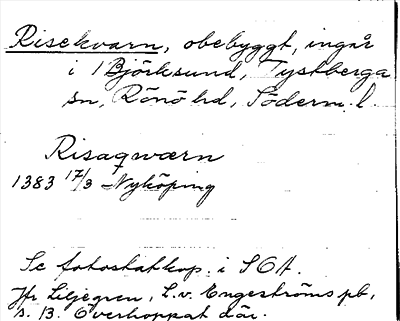 Risekvarn, obebyggt, ingår
i 1 Björksund, Tystberga
sn, Rönö hd, Söderm. l.
Risaqwærn
1383 17/3 Nyköping
Se fotostatkop. i SOA.
Jfr Liljegren, L. v. Engeströms pb,
s. 13. Överhoppat där.